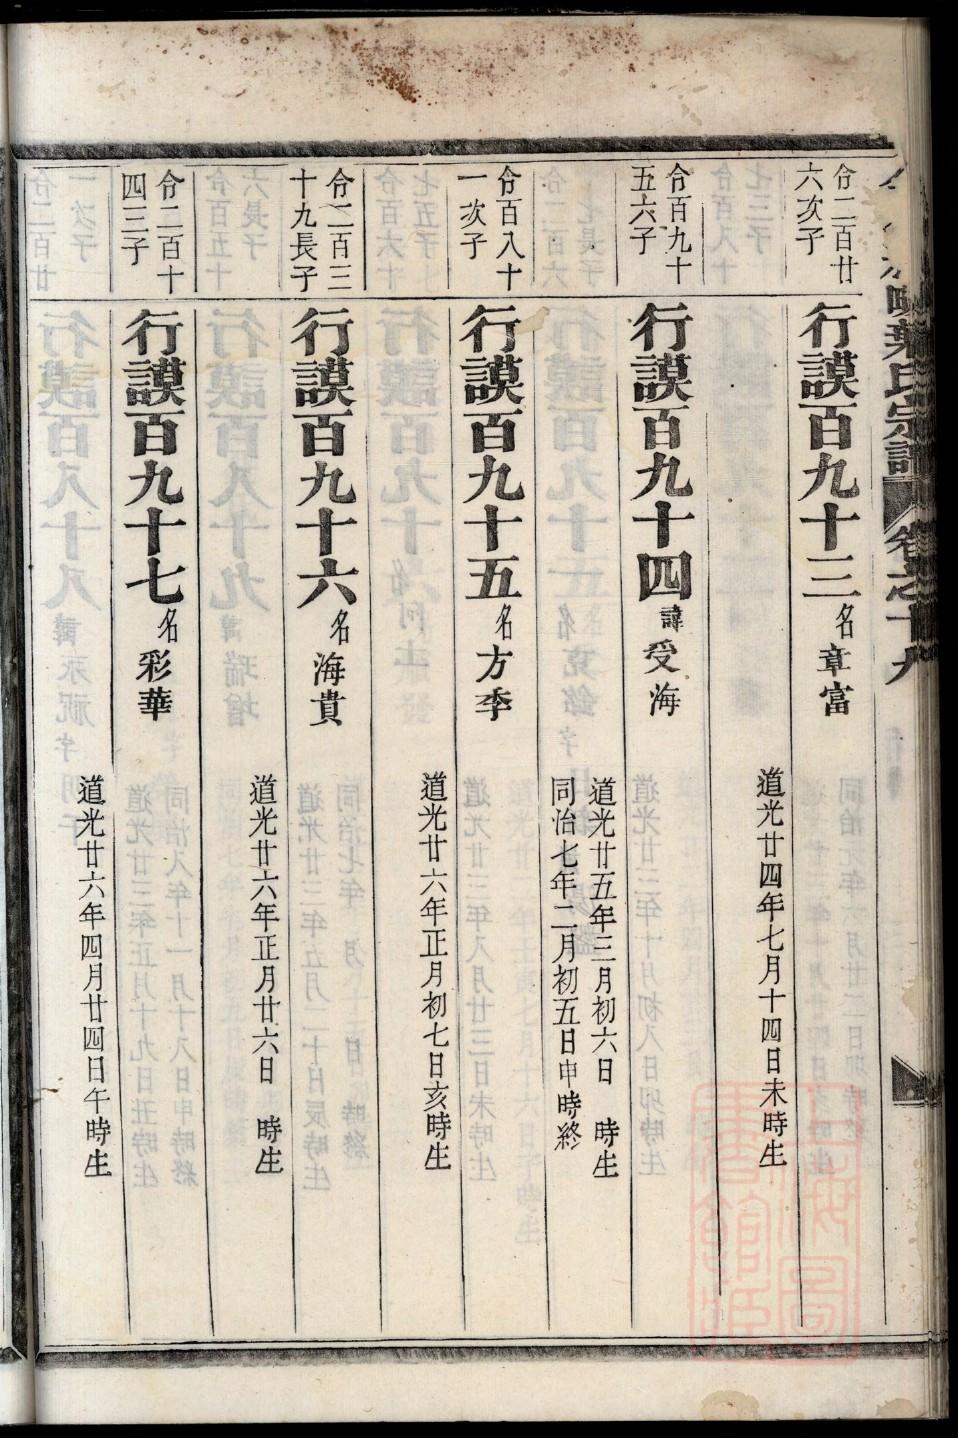 歐葉氏宗譜 卷之十八
令二百廿
六次子
行謨百九十三 名章富
道光廿四年七月十四日未時生
令百九十
五六子
行謨百九十四 諱受海
道光廿五年三月初六日 時生
同治七年二月初五日申時終
令百八十
一次子
行謨百九十五 名方季
道光廿六年正月初七日亥時生
令二百三
十九長子
行謨百九十六 名海貴
道光廿六年正月廿六日 時生
令二百十
四三子
行謨百九十七 名彩華
道光廿六年四月廿四日午時生